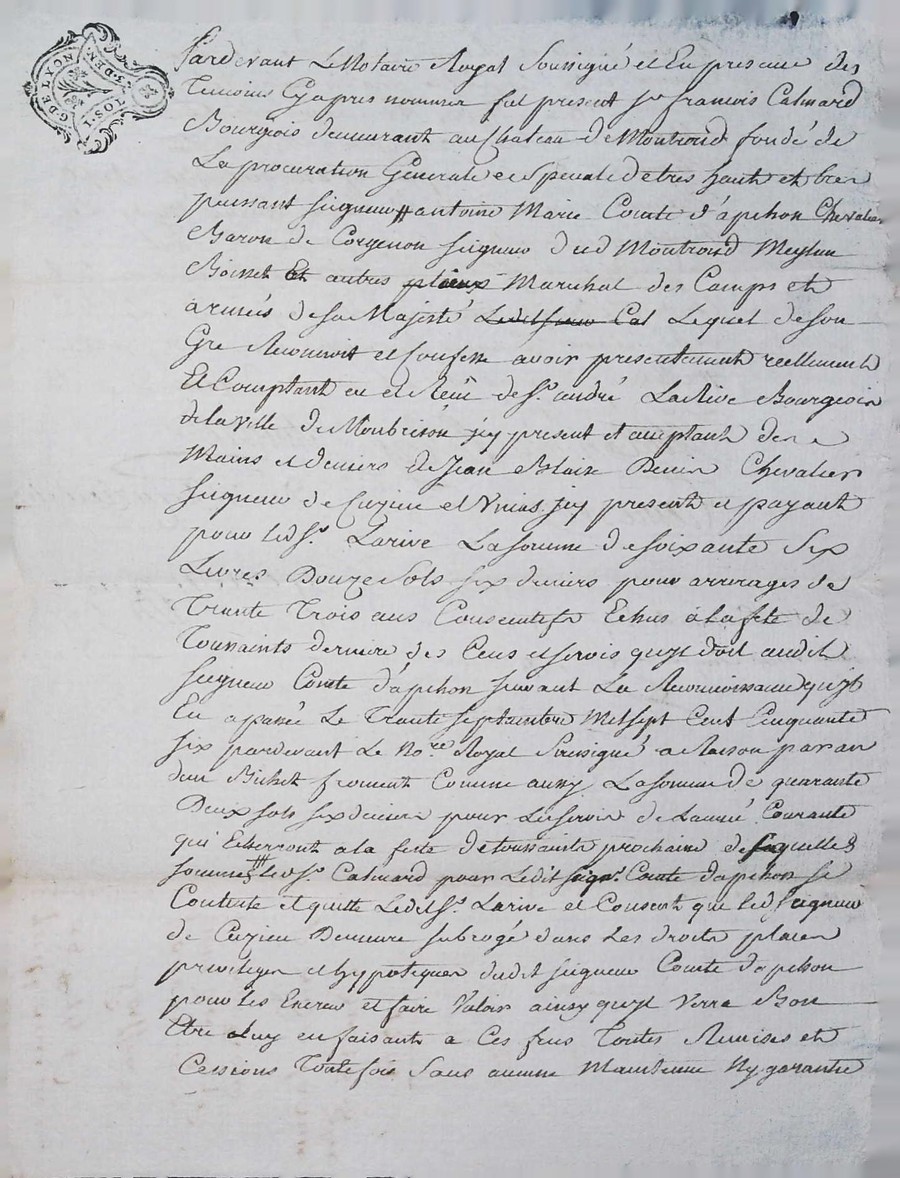 G. DE LYON
TOS. I.
S. DEN.
Pardevant Le Notaire Royal Soussigné et En presence des
Temoins Cyapres nommer fut present sr francois Calmard
Bourgeois demeurant au Chateau de Montrond fondé de
La procuration Generale et Speciale de tres haut et bien
puissant seigneur antoine Marie Comte d'apchon Chevalier
Baron de Corgenon seigneur dud Montrond Meylieu
Boisset Et autres places Marechal des Camps et
armées de sa Majesté Ledit sieur Cal Lequel de son
Gre Reconnoit et Confesse avoir presentement reellement
Et Comptant eu et Reçû de Sr. andré La Rive Bourgeois
de la ville de Montbrison jcy present et acceptant des
Mains et deniers de Jean Blaise Denis Chevalier
seigneur de Cuzieu et Unias jcy present et payant
pour led Sr. Larive La somme de soixante six
Livres Douze Sols six deniers pour arrerages de
Trente Trois ans Consecutifs Echus a la fete de
Toussaints derniere des Cens et servis qu'yl doit audit
seigneur Comte d'apchon suivant La Reconnoissance qu'yl
En a passée Le Trente septembre Mil sept Cent Cinquante
six pardevant Le Nore. Royal Soussigné a Raison par an
dun Bichet froment Comme aussy La somme de quarante
Deux sols six deniers pour Le servis de Lannée Courante
qui Echerront a la feste de toussaints prochaine desquelles
sommes led Sr Calmard pour Ledit seigr. Comte dapchon se
Contente et quitte Ledit Sr. Larive et Consent que led seigneur
de Cuzieu Demeure subrogé dans Les droits places
privileges et hypoteques dudit seigneur Comte dapchon
pour Les Exercer et faire Valoir ainsy qu'yl Verra Bon
Etre luy en faisant a Ces fins Toutes Remises et
Cessions Toutefois Sans aucune Maintenue Ny garantie